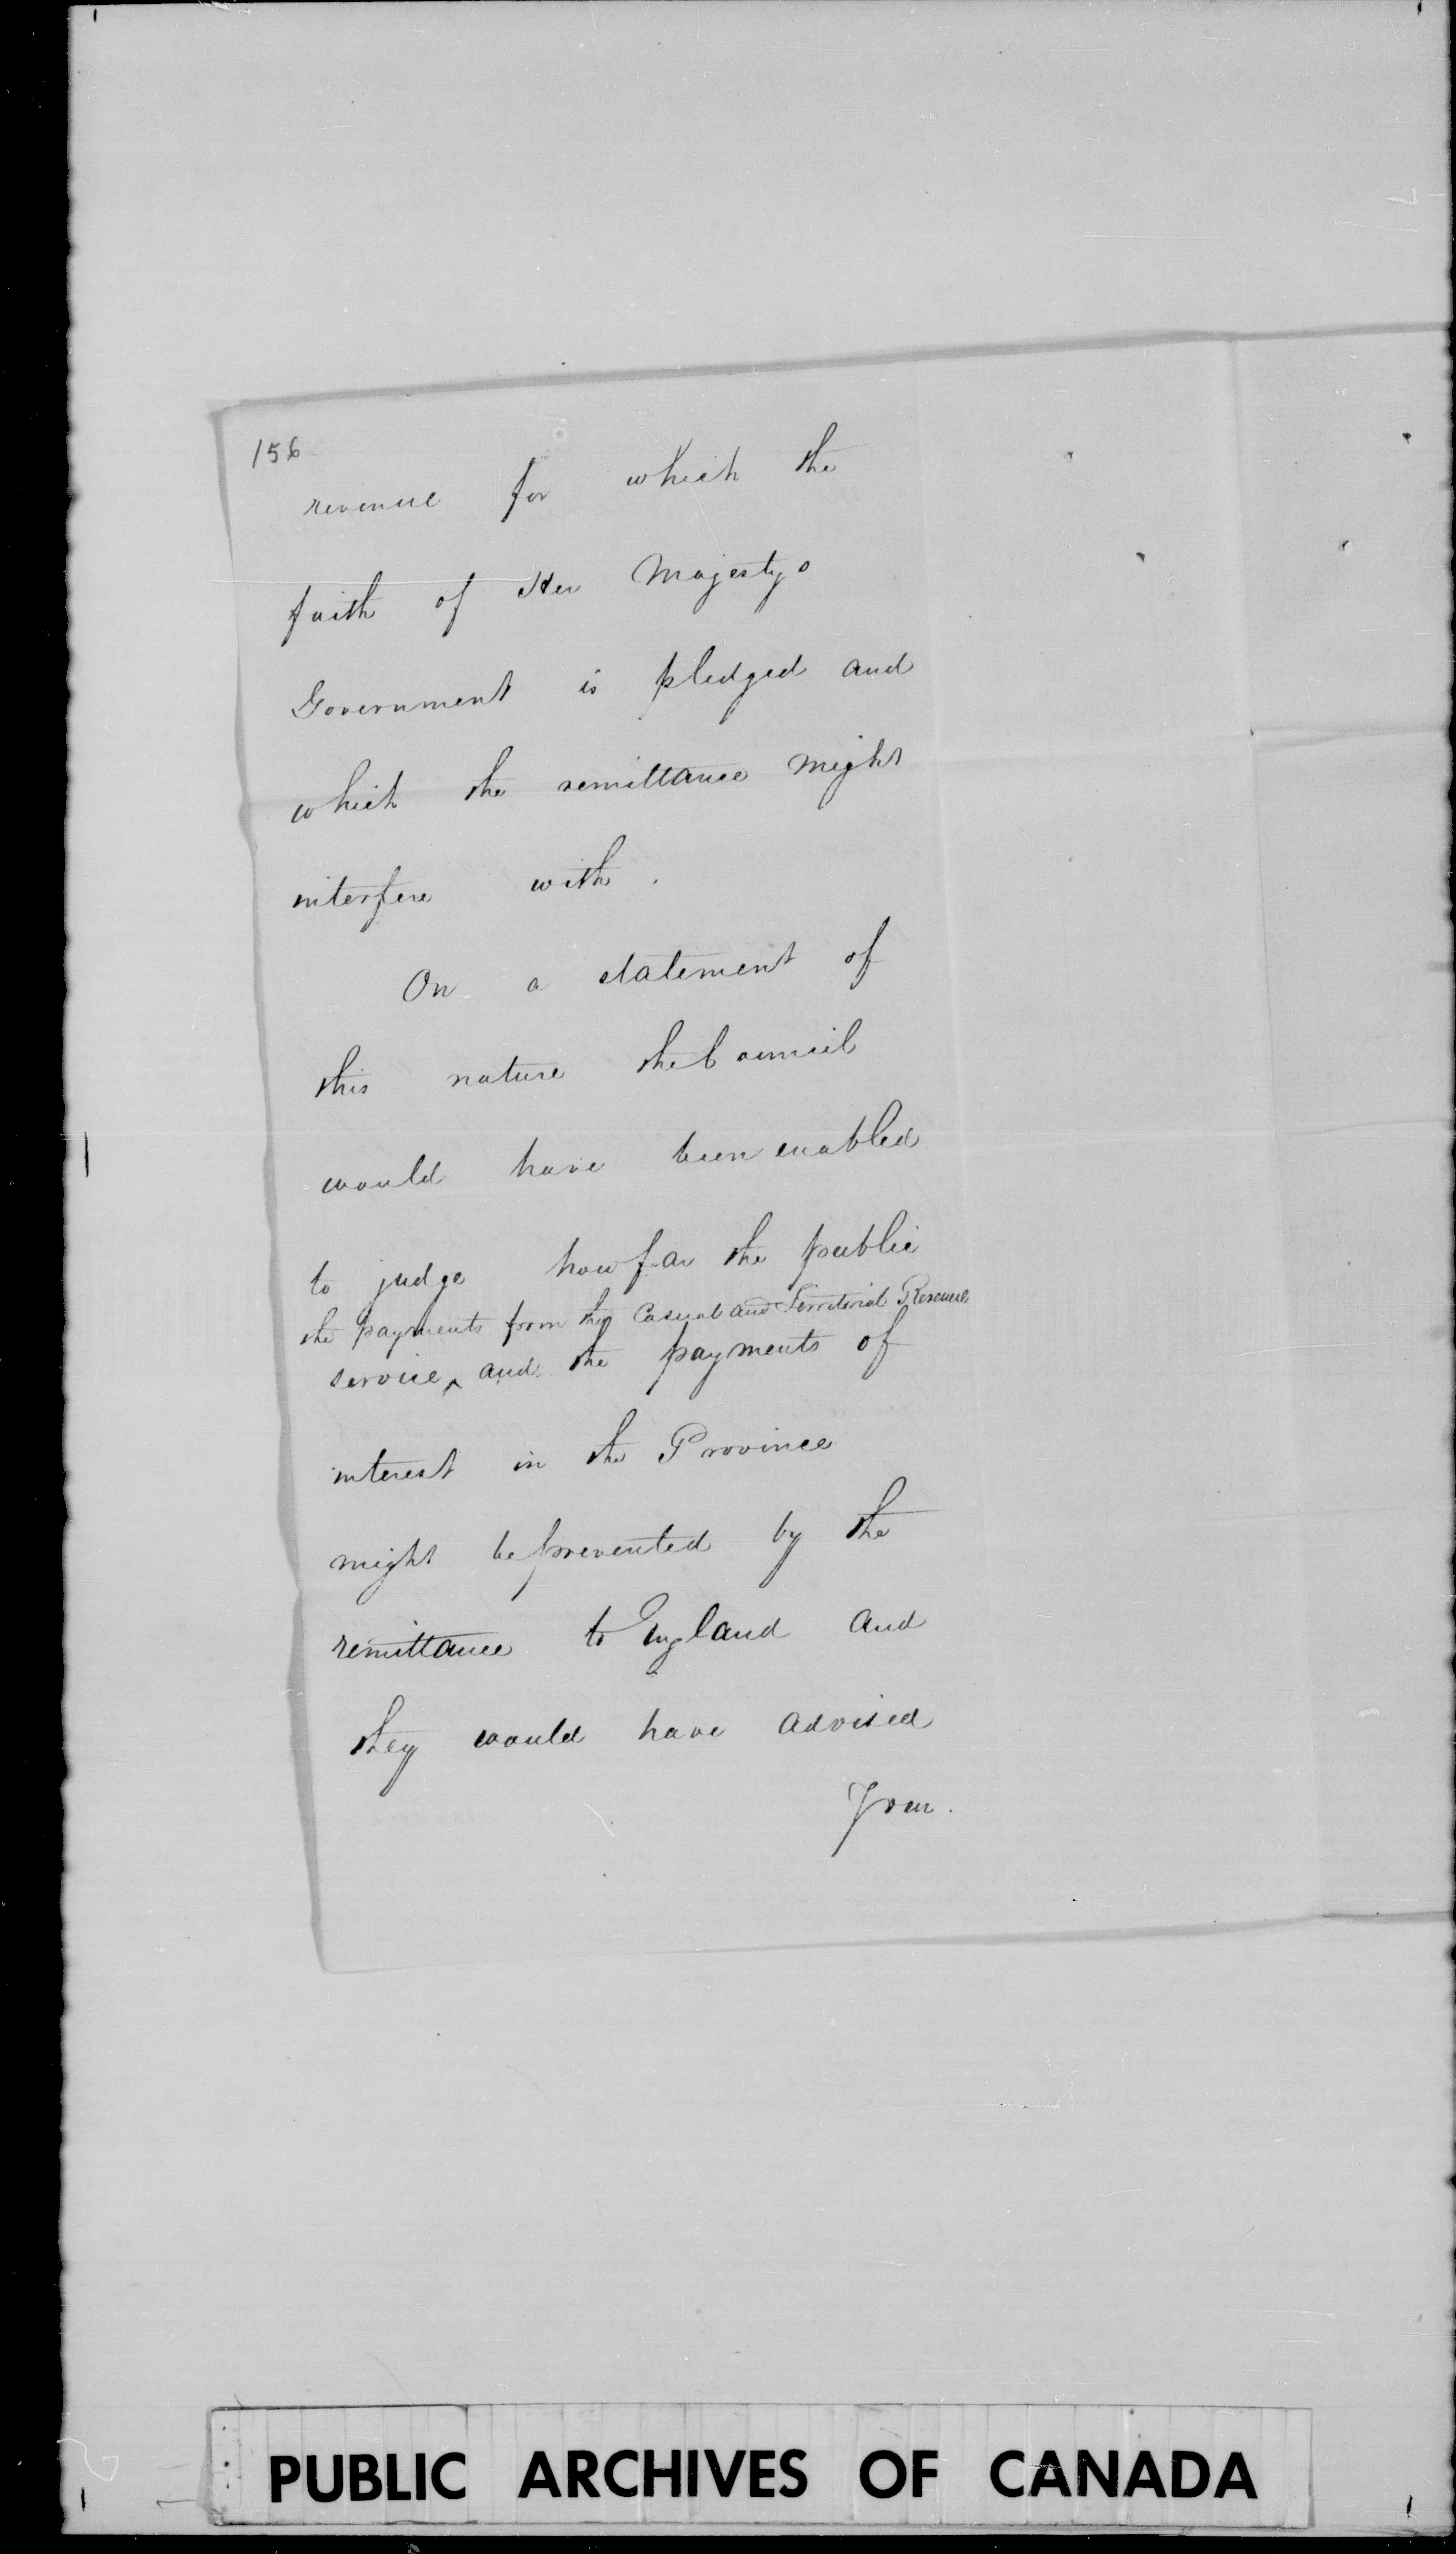 156
revenue for which the
faith of Her Majestys
Government is pledged and
which the remittance might
interfere with.
On a statement of
this nature the Council
would have been enabled
to judge how far the public
the payments from the Casual and Territorial Revenue
service ^ and the payments of
interest in the Province
might be prevented by the
remittance to England and
they would have advised
Your.
PUBLIC ARCHIVES OF CANADA